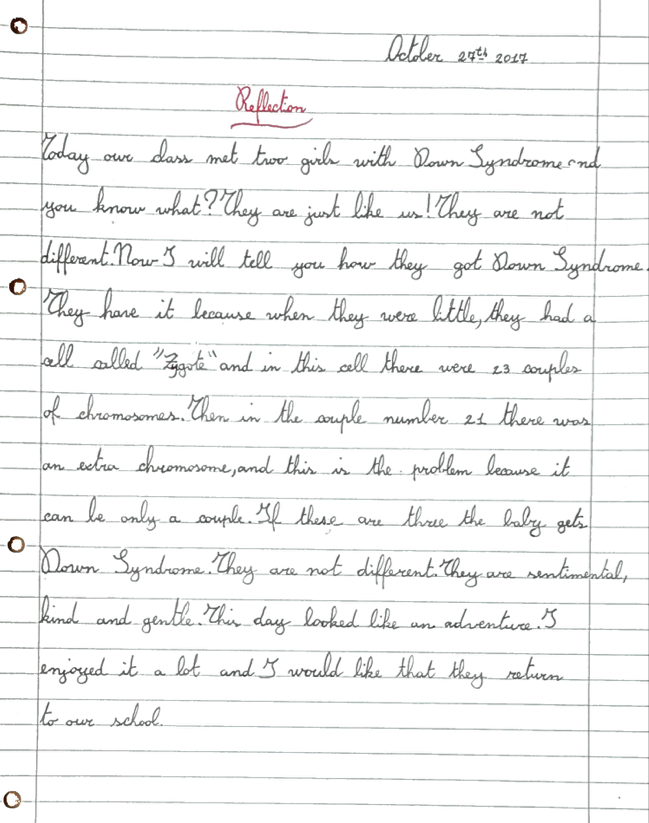 October 27th 2017
Reflection
Today our class met two girls with Down Syndrome and
you know what? They are just like us! They are not
different. Now I will tell you how they got Down Syndrome.
They have it because when they were little, they had a
cell called "Zygote" and in this cell there were 23 couples
of chromosomes. Then in the couple number 21 there was
an extra chromosome, and this is the problem because it
can be only a couple. If these are three the baby gets
Down Syndrome. They are not different. They are sentimental,
kind and gentle. This day looked like an adventure. I
enjoyed it a lot and I would like that they return
to our school.